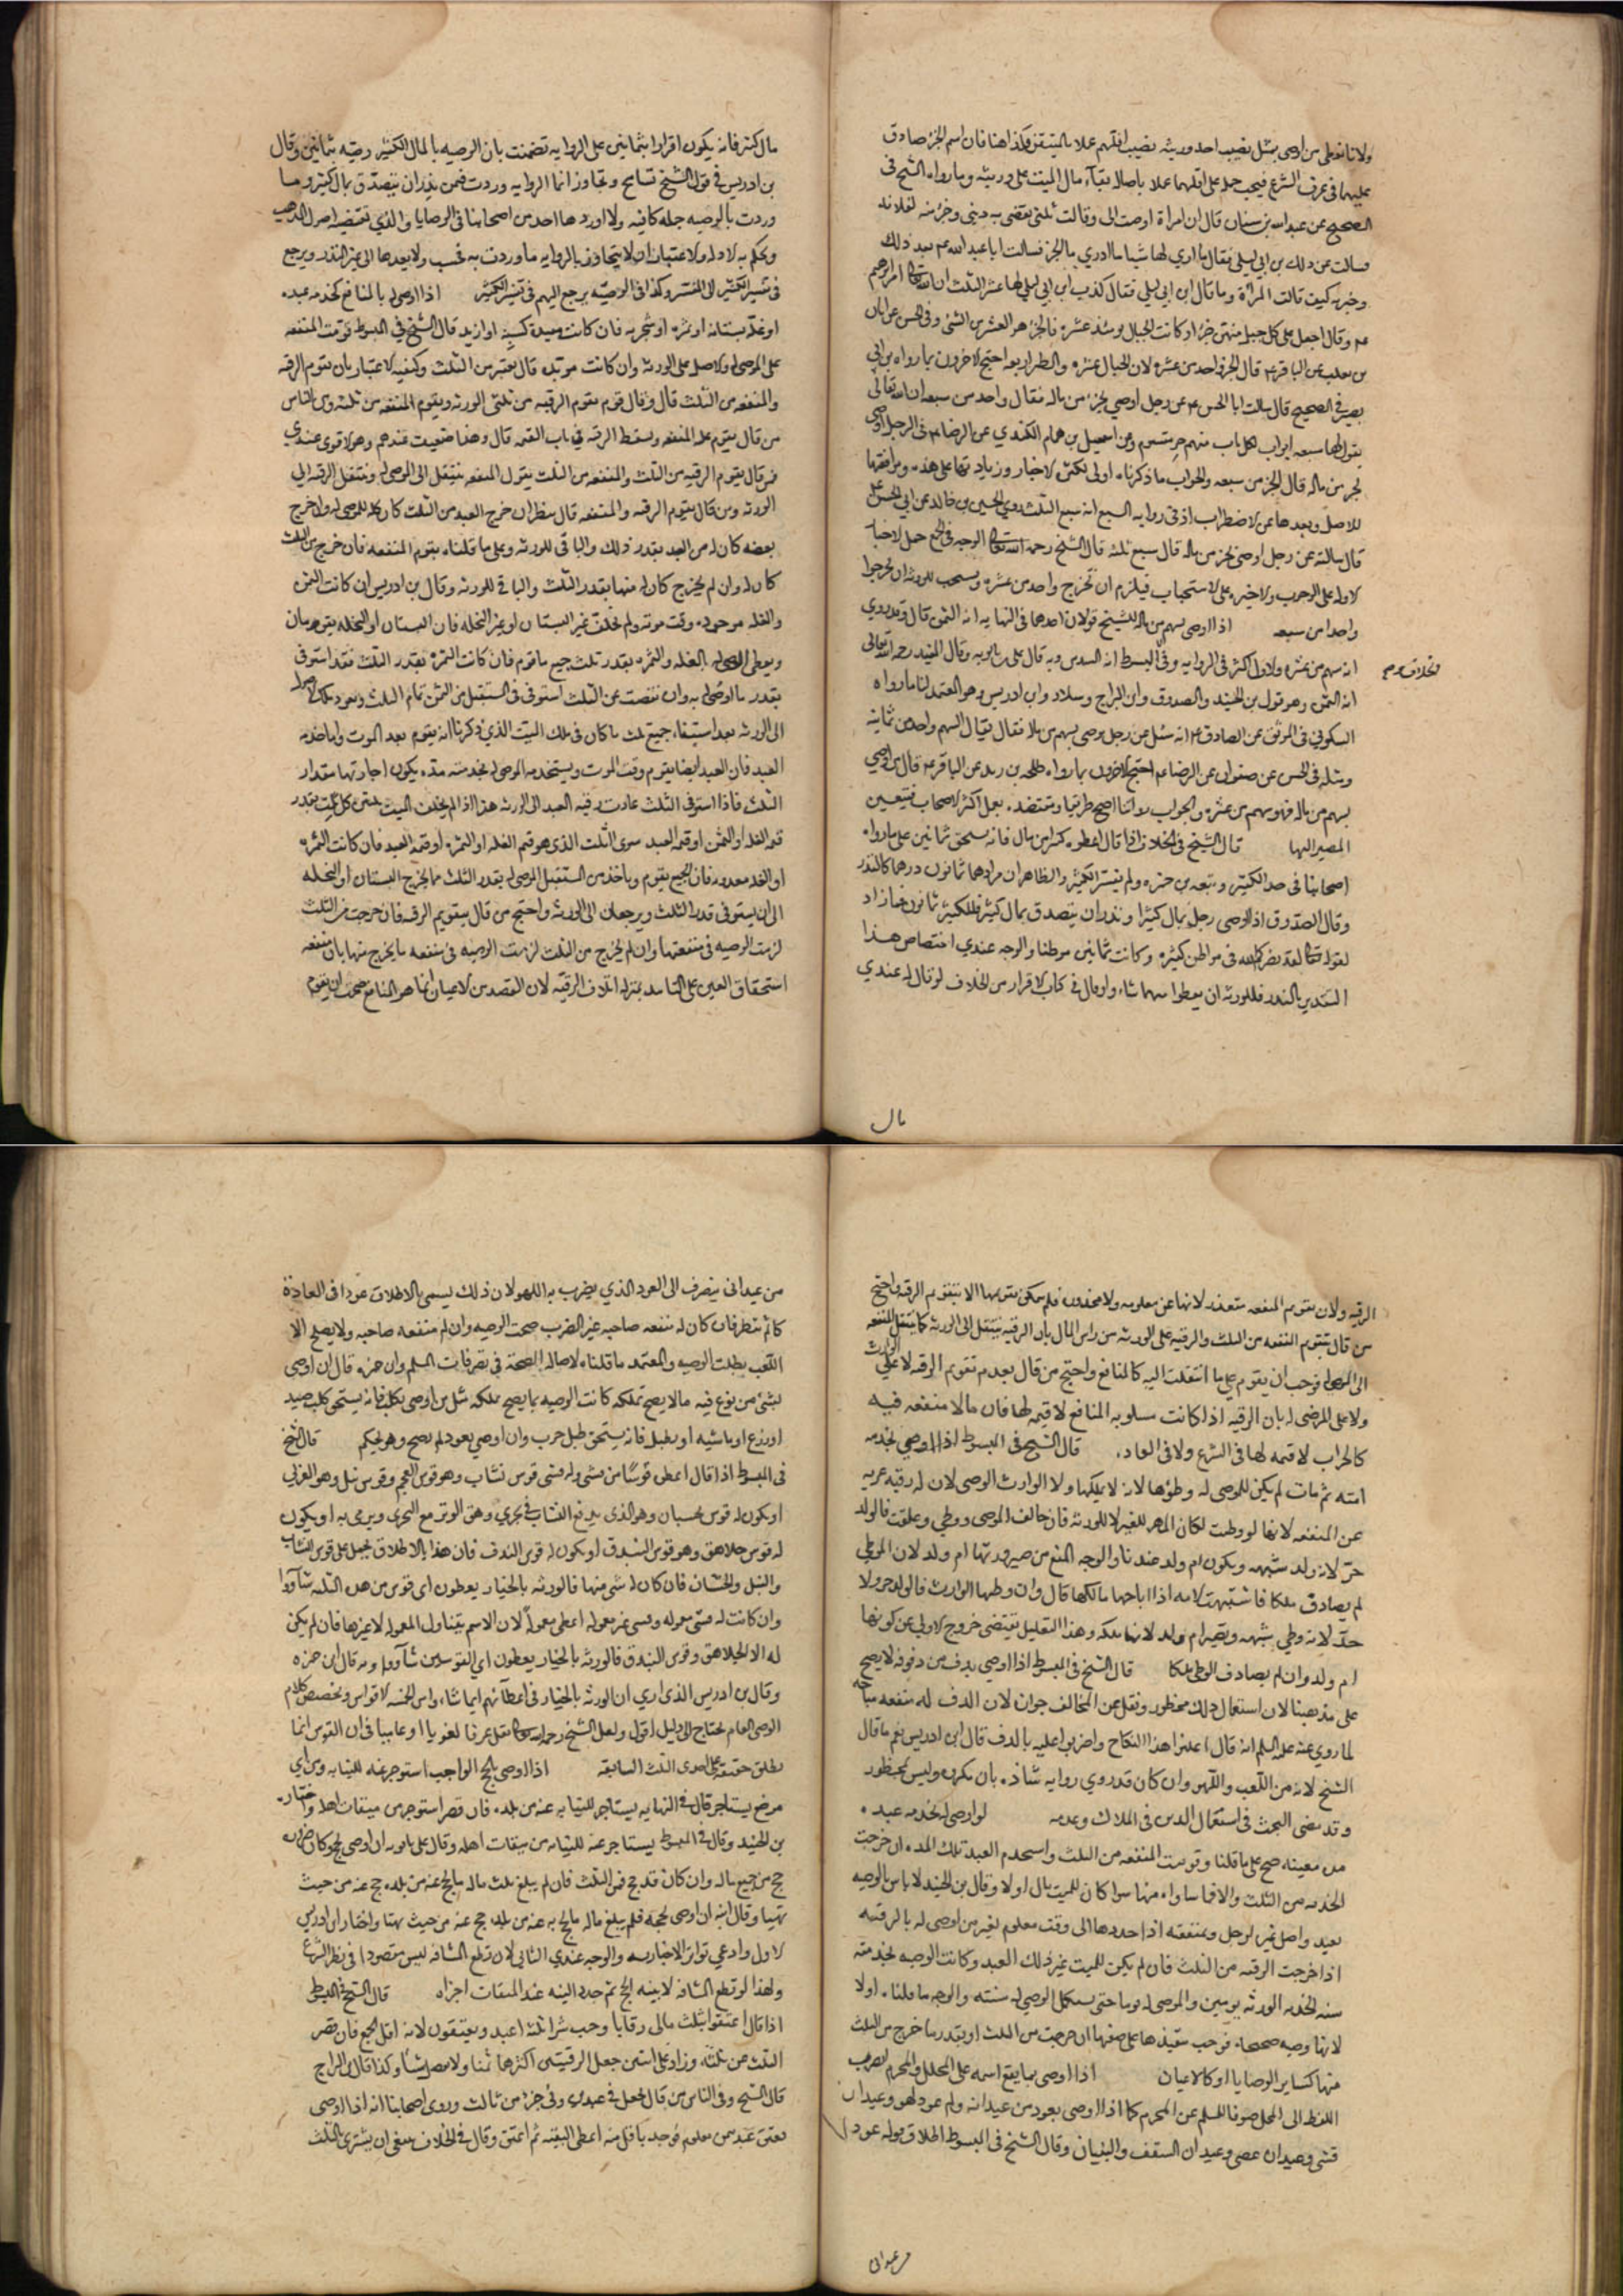 ولانا نعطى من اوصى بمثل نصيب احد ورثته نصيب اقلهم عملا بالمتيقن وكذا هنا فان اسم الجزء صادق
عليهما فى عرف الشرع فيجب حمله على اقلهما عملا باصالة بقاء مال الميت على ورثته وما رواه الشيخ فى
الصحيح عن عبد الله بن سنان قال ان امراة اوصت الى وقالت ثلثى يقضى به دينى وجزء منه لفلانه
فسالت عن ذلك بن ابى ليلى فقال ما ارى لها شيا ما ادرى ما الجزء فسالت ابا عبد الله عم بعد ذلك
وخبرته كيف قالت المراة وما قال ابن ابى ليلى فقال كذب ابن ابى ليلى لها عشر الثلث ان الله تعالى امر ابرهيم
عم وقال اجعل على كل جبل منهن جزءا وكانت الجبال يومئذ عشرة فالجزء هو العشر من الشئ وفى الحسن عن ابان
بن تغلب عن الباقر عم قال الجزء واحد من عشره لان الجبال عشره والطير اربعه احتج الاخرون بما رواه بن ابى
بصير فى الصحيح قال سالت ابا الحسن عم عن رجل اوصى بجزء من ماله فقال واحد من سبعه ان الله تعالى
يقول لها سبعه ابواب لكل باب منهم جزء مقسوم وعن اسمعيل بن همام الكندي عن الرضا عم فى الرجل اوصى
بجزء من ماله قال الجزء من سبعه والجواب ما ذكرناه اولى لكثرة الاخبار وزيادتها على هذه وموافقتها
للاصل وبعدها عن الاضطراب اذ فى روايه السبع انه سبع الثلث روى الحسين بن خالد عن ابى الحسن عم
قال سالته عن رجل اوصى بجزء من ماله قال سبع ثلثه قال الشيخ رحمه الله تعالى الوجه فى الجمع حمل الاخبار
الاوله على الوجوب والاخيره على الاستحباب فيلزم ان تخرج واحد من عشره ويستحب للورثه ان يخرجوا
واحدا من سبعه اذا اوصى بسهم من ماله للشيخ قولان احدهما فى النهايه انه الثمن قال وقد روى
انه سهم من عشره والاول اكثر فى الروايه وفى المبسوط انه السدس وبه قال على بن بابويه وقال المفيد رحمه الله تعالى
انه الثمن وهو قول بن الجنيد والصدوق وابن البراج وسلار وابن ادريس وهو المعتمد لنا ما رواه
السكونى فى الموثق عن الصادق عم انه سئل عن رجل يوصى بسهم من ماله فقال السهم واحد من ثمانيه
ومثله فى الحسن عن صفوان عن الرضا عم احتج الاخرون بما رواه طلحه بن زيد عن الباقر عم قال من اوصى
بسهم من ماله فهو سهم من عشره والجواب روايتنا اصح طريقا ومعتضده بعمل اكثر الاصحاب فتعين
المصير اليها قال الشيخ فى الخلاف اذا قال اعطوه كثيرا من مالى فانه يستحق ثمانين على ما رواه
اصحابنا فى حد الكثير وتبعه بن حمزه ولم يفسر الكثير والظاهر ان مرادهما ثمانون درهما كالنذر
وقال الصدوق اذا اوصى رجل بمال كثير او نذر ان يتصدق بمال كثير فالكثير ثمانون فما زاد
لقوله تعالى لقد نصركم الله فى مواطن كثيره وكانت ثمانين موطنا والوجه عندي اختصاص هذا
التقدير بالنذر فللورثه ان يعطوا مهما شاءوا وقال فى كتاب الاقرار من الخلاف لو قال له عندي
مال
مال كثير فانه يكون اقرارا بثمانين على الروايه تضمنت بان الوصيه بالمال الكثير وصيه بثمانين وقال
بن ادريس فى قول الشيخ تسامح وتجاوز انما الروايه وردت فيمن نذر ان يتصدق بمال كثير وما
وردت بالوصيه جمله كافيه ولا اوردها احد من اصحابنا فى الوصايا والذي تقتضيه اصول المذهب
وتحكم به الادله والاعتبار ان لا يتجاوز بالروايه ما وردت به فحسب ولا يعدها الى غير النذر ويرجع
فى تفسير الكثير الى المفسر وكذا فى الوصيه يرجع اليهم فى تفسير الكثير اذا اوصى له بالمنافع كخدمه عبده
او غلة بستانه او ثمره او شجره فان كانت مقيده كسنه او ازيد قال الشيخ فى المبسوط قومت المنفعه
على الموصى له والاصل على الورثه وان كانت موبده قال تعتبر من الثلث وكيفيه الاعتبار بان يقوم الرقبه
والمنفعه من الثلث قال وقال قوم يقوم الرقبه من ثلثى الورثه ويقوم المنفعه من ثلثه وفى الناس
من قال يقوم عليه المنفعه ويسقط الرقبه فى باب القيمه قال وهذا ضعيف عندهم وهو الاقوى عندي
فمن قال يقوم الرقبه من الثلث والمنفعه من الثلث يقول المنفعه ينتقل الى الموصى له وينتقل الرقبه الى
الورثه ومن قال يقوم الرقبه والمنفعه قال ينظر ان خرج العبد من الثلث كان كله للموصى له وان خرج
بعضه كان له من العبد بقدر ذلك والباقى للورثه وعلى ما قلناه يقوم المنفعه فان خرج من الثلث
كان له وان لم يخرج كان له منها بقدر الثلث والباقى للورثه وقال بن ادريس ان كانت الثمره
والغله موجوده وقت موته ولم يخلف غير البستان او غير النخله فان البستان او النخله يقومان
ويعطى الموصى له الغله والثمره بقدر ثلث جميع ما قوم فان كانت الثمره بقدر الثلث فقد استوفى
بقدر ما اوصى له به وان نقصت عن الثلث استوفى فى المستقبل من الثمره تمام الثلث وتعود الاصول
الى الورثه بعد استيفاء جميع ثلث ما كان فى ملك الميت الذي ذكرنا انه يقوم بعد الموت واما خدمه
العبد فان العبد ايضا يقوم وقت الموت ويستخدمه الموصى له بخدمته مدة يكون اجارتها مقدار
الثلث فاذا استوفى الثلث عادت رقبه العبد الى الورثه هذا اذا لم يخلف الميت
الى ان يستوفى قدر الثلث ويرجعان الى الورثه واحتج من قال بتقويم الرقبه فان خرجت من الثلث
لزمت الوصيه فى منفعتها وان لم يخرج من الثلث لزمت الوصيه فى منفعه ما يخرج منها بان منفعه
استحقاق العين على التابيد بمنزله اتلاف الرقبه لان القصد من الاعيان انما هو المنافع فيجب ان يقوم
الرقبه ولان تقويم المنفعه متعذر لانها غير معلومه ولا محدوده فلم يمكن تقويمها الا بتقويم الرقبه واحتج
من قال بتقويم المنفعه من الثلث والرقبه على الورثه من راس المال بان الرقبه ينتقل الى الورثه كما ينتقل المنفعه
الى الموصى له فوجب ان يقوم على ما انتقلت اليه كالمنافع واحتج من قال بعدم تقويم الرقبه لا على الوارث
ولا على الموصى له بان الرقبه اذا كانت مسلوبه المنافع لا قيمه لها فان ما لا منفعه فيه
كالخراب لا قيمه لها فى الشرع ولا فى العاده قال الشيخ فى المبسوط اذا اوصى بخدمه
امته ثم مات لم يكن للموصى له وطؤها لانه لا يملكها ولا الوارث الموصى لان له رقبه عريه
عن المنفعه لانها لو وطيت لكان المهر للغير لا للورثه فان خالف الموصى ووطى وعلقت فالولد
حر لانه ولد شبهه ويكون ام ولد عندنا والوجه المنع من صيرورتها ام ولد لان الموطى
لم يصادق ملكا فاشتبهت لامه اذا اباحها مالكها قال وان وطيها الوارث فالولد حر ولا
حد لانه وطى شبهه ويصير ام ولد لانها ملكه وهذا التعليل يقتضى خروج الاولى عن كونها
ام ولد وان لم يصادف الوطى ملكا قال الشيخ فى المبسوط اذا اوصى بدف من دفوفه لا يصح
على مذهبنا لان استعمال ذلك محظور ونقل عن المخالف جوازه لان الدف له منفعه مباحه
لما روي عنه عليه السلم انه قال اعلنوا هذا النكاح واضربوا عليه بالدف قال ابن ادريس نعم ما قال
الشيخ لانه من اللعب واللهو وان كان قد روي روايه شاذه بانه مكروه وليس بمحظور
وقد مضى البحث فى استعمال الدف فى الملاك وعدمه لو اوصى له بخدمه عبده
مده معينه صح على ما قلنا وقومت المنفعه من الثلث واستخدم العبد تلك المده ان خرجت
الخدمه من الثلث والا فما ساواه منها سوا كان للميت مال اولا وقال بن الجنيد لا باس بالوصيه
بعبد واصل غيره لرجل ومنفعته اذا حددها الى وقت معلوم لغير من اوصى له بالرقبه
اذا خرجت الرقبه من الثلث فان لم يكن للميت غير ذلك العبد وكانت الوصيه بخدمته
سنه لخدم الورثه يومين والموصى له يوما حتى يستكمل الموصى له سنته والوجه ما قلناه اولا
لانها وصيه صحيحه فوجب تنفيذها على صفتها ان خرجت من الثلث او بقدر ما خرج من الثلث
منها كساير الوصايا او كالاعيان اذا اوصى بما يقع اسمه على المحلل والمحرم انصرف
اللفظ الى المحلل صونا للمسلم عن المحرم كما اذا اوصى بعود من عيدانه وله عود لهو وعيدان
قسى وعيدان عصى وعيدان السقف والبنيان وقال الشيخ فى المبسوط اطلاق قوله عود
من عيدانى
من عيدانى ينصرف الى العود الذي يضرب به اللهو لان ذلك يسمى بالاطلاق عودا فى العادة
كاثم ننظر فان كان له منفعه صاحبه غير الضرب صحت الوصيه وان لم منفعه صاحبه ولا يصلح الا
اللعب بطلت الوصيه والمعتمد ما قلناه لاصالة الصحة فى تصرفات المسلم وابن حمزه قال ان اوصى
بشئ من نوع فيه ما لا يصح تملكه كانت الوصيه بما يصح ملكه مثل من اوصى بكلب فانه يستحق كلب صيد
او زرع او ماشيه او بطبل فانه يستحق طبل حرب وان اوصى بعود لم يصح وهو لحكم قال الشيخ
فى المبسوط اذا قال اعطوه قوسا من قسى وله قسى قوس نشاب وهو قوس العجم وقوس نبل وهو العربى
او يكون له قوس حسبان وهو الذى يدفع النشاب فى مجرى وهو الوتر مع المجرى ويرمى به او يكون
له قوس جلاهق وهو قوس البندق او يكون له قوس الندف فان هذا بالاطلاق يحمل على قوس النشاب
والنبل والحسبان فان كان له شى منها فالورثه بالخيار يعطون اى قوس من هذه الثلثه شاؤوا
وان كانت له قسى معموله وقسى غير معموله اعطى معمولة لان الاسم يتناول المعموله لا غيرها فان لم يكن
له الا الجلاهق وقوس البندق فالورثه بالخيار يعطون اي القوسين شاؤوا وبه قال ابن حمزه
وقال بن ادريس الذي اري ان الورثه بالخيار فى اعطائهم ايما شاءوا من الخمسه الاقواس وتخصيص كلام
الموصى العام يحتاج الى دليل اقول ولعل الشيخ رحمه الله تعالى نقل عرفا لغويا او عاميا فى ان القوس انما
يطلق حقيقه على احدى الثلث السابقه اذا اوصى بالحج الواجب استوجر عنه للنيابه ومن اي
موضع يستاجر قال فى النهايه يستاجر للنيابه عنه من بلده فان قصر استوجر من ميقات اهله واختاره
بن الجنيد وقال فى المبسوط يستاجر عنه للنيابه من ميقات اهله وقال على بن بابويه ان اوصى بحج وكان صروره
حج من جميع ماله وان كان قد حج فمن الثلث فان لم يبلغ ثلث ماله ما يحج عنه من بلده حج عنه من حيث
تهيا وقال ابنه ان اوصى بحجه فلم يبلغ ماله ما يحج به عنه من بلده حج عنه من حيث تهيا واختار ابن ادريس
الاول وادعى تواتر الاخبار به والوجه عندي الثانى لان قطع المسافه ليس مقصودا فى نظر الشرع
ولهذا لو قطع المسافه لا بنيه الحج ثم جدد النيه عند الميقات اجزاه قال الشيخ فى المبسوط
اذا قال اعتقوا بثلث مالى رقابا وجب شرا ثلثه اعبد ويعتقون لانه اقل الجمع فان قصر
الثلث عن ثلثه وزاد على اثنين جعل الرقبتين اكثرهما ثمنا ولا يفضل شيئا وكذا قال ابن البراج
قال الشيخ وفى الناس من قال يجعل فى عبدين وفى جزء من ثالث وروى اصحابنا انه اذا اوصى
بعتق عبد بثمن معلوم فوجد باقل منه اعطى البقيه ثم اعتق وقال فى الخلاف ينبغى ان يشترى بالثلث